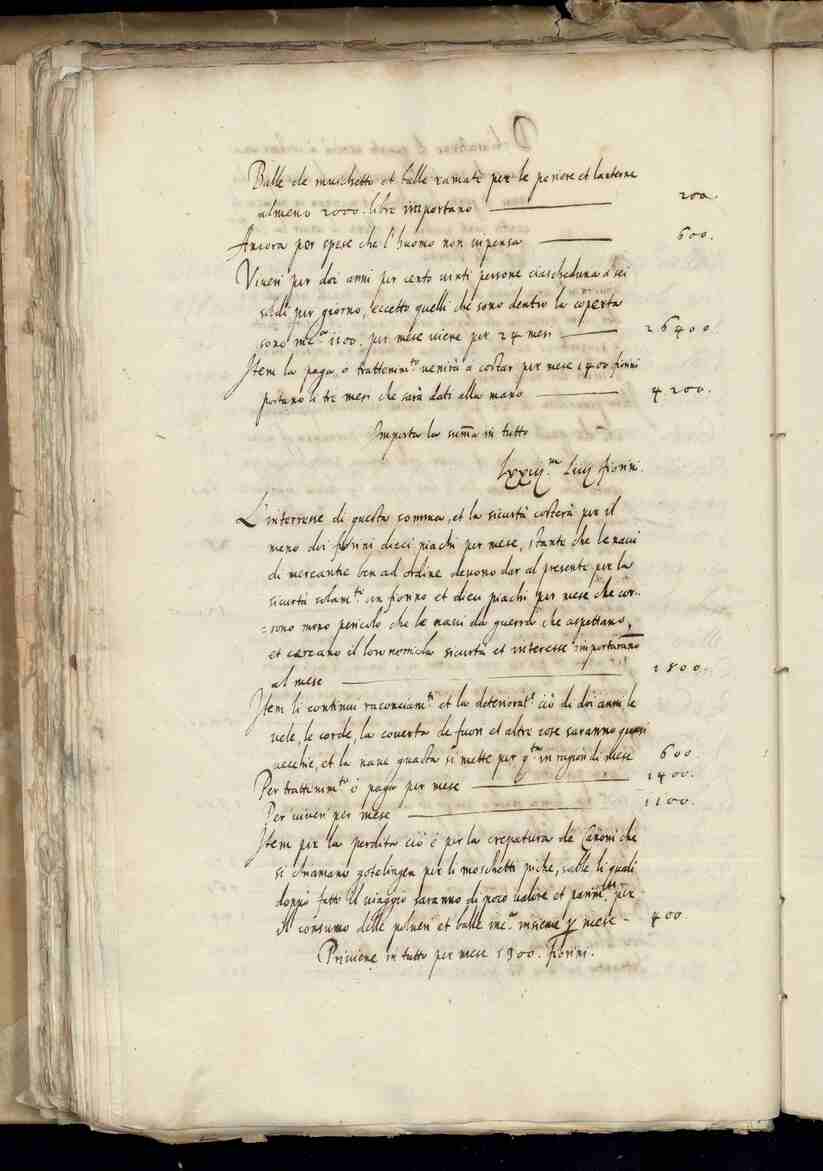 Balle de muschetto et balle ramate per le periere et lanterne
almeno 2000 libre importano 200.
Ancora per spese che l'huomo non inpensa 600.
Viveri per doi anni per cento vinti persone ciascheduna a sei
soldi per giorno, eccetto quelli che sono dentro la coperta
sono inc.ᵃ 1100. per mese viene per 24 mesi 26400
Item la paga, o trattenim.ᵗᵒ venirà a costar per mese 1400 fiorini
portano li tre mesi che sarà dati alla mano 4200.
Importa la suma in tutto
fiorini.
L'interesse di questa somma, et la sicurtà costerà per il
meno doi fiorini dieci piachi per mese, stante che le navi
di mercantie ben ad ordine devono dar al presente per la
sicurtà solam.ᵗᵉ un fiorino et dieci piachi per mese che cor-
=sono meno pericolo che le navi da guerra che aspettano,
et cercano il loro nemico la sicurtà et interesse importarano
al mese 1800.
Item li continui raconciam.ᵗⁱ et la deteriorat.ᵉ ciò di doi anni le
vele, le corde, la coverta de fuori et altre cose saranno quasi
vecchie, et la nave guasta si mette per q.ᵗᵒ in ragion di mese 600
Per trattenim.ᵗᵒ o paga per mese 1400.
Per viveri per mese 1100.
Item per la perdita ciò è per la crepatura de Canoni che
si chiamano gotelingen per li moschetti piche, sable li quali
doppo fatto il viaggio saranno di poco valore et parim.ᵗᵉ per
il consumo delle polveri et balle inc.ᵃ insieme p mese - 400.
Perviene in tutto per mese 1900. fiorini.